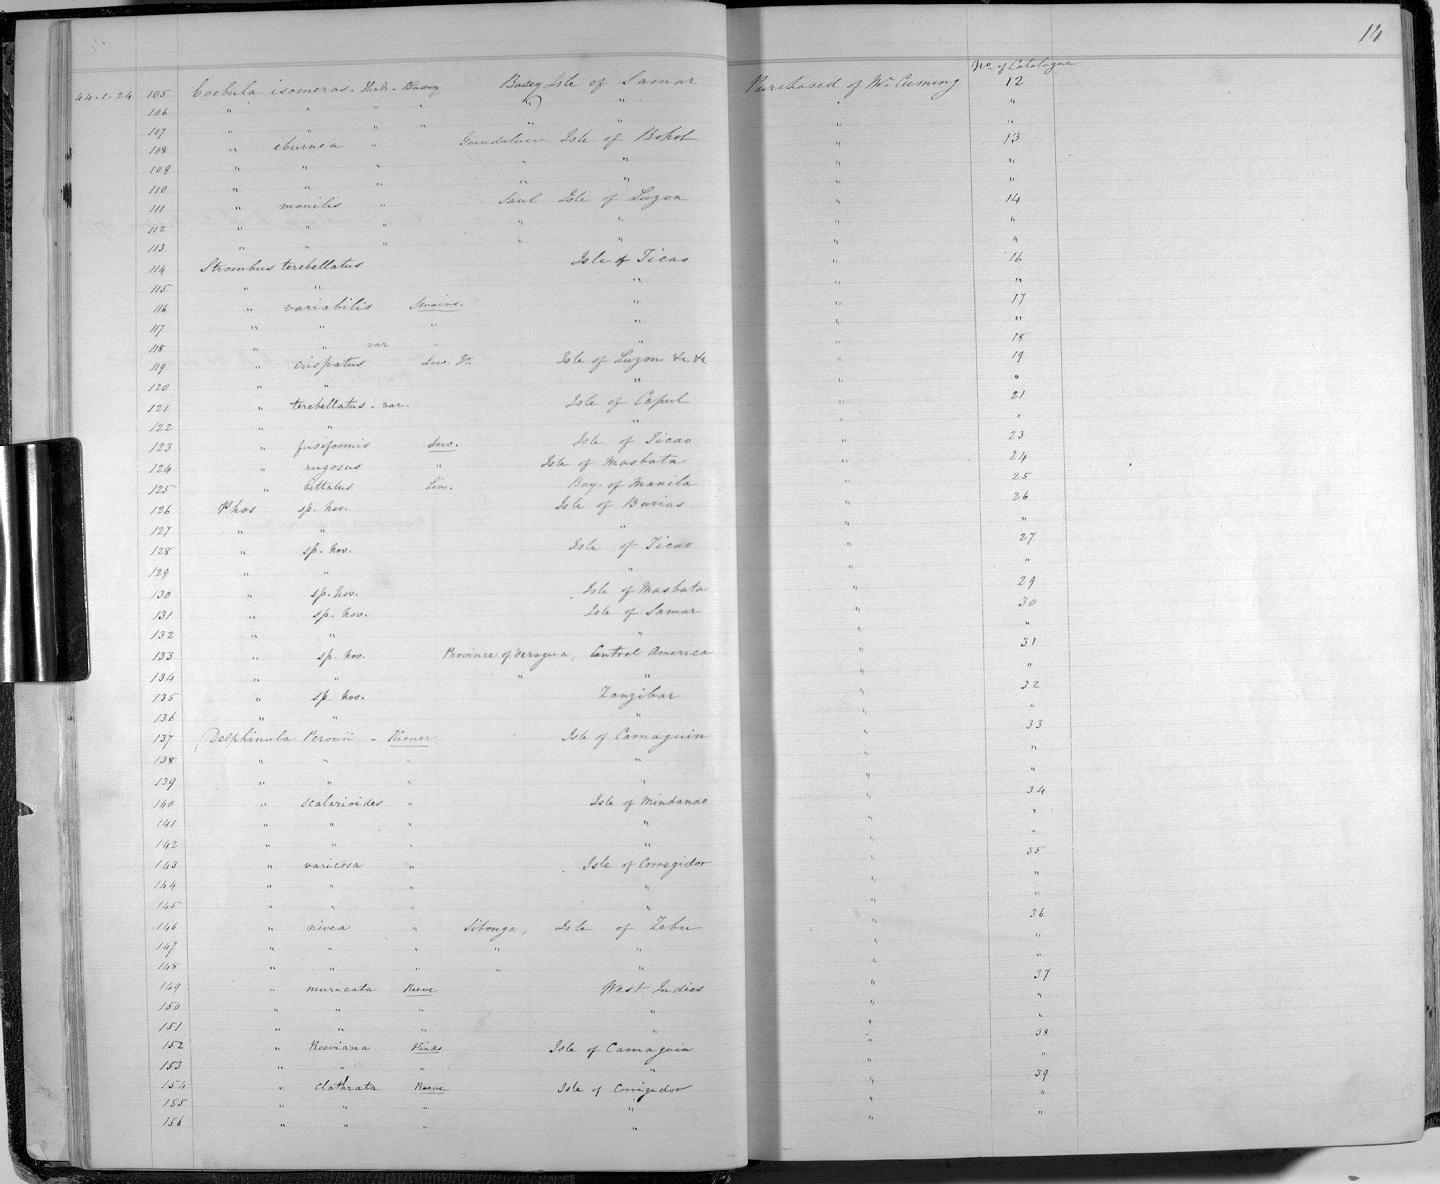 14
No. of Catalogue
44.1.24 105 Corbula isomeros - Hinds - Basey Basey, Isle of Samar Purchased of Mr Cuming 12
106 " " " " " " "
107 " " " " " " " "
108 " eburnea " Isle of Bohol " 13
109 " " " " " " "
110 " " " " " " "
111 " monilis " Saul Isle of Luzon " 14
112 " " " " " " "
113 " " " " " " "
114 Strombus terebellatus Isle of Ticao " 16
115 " " " " "
116 " variabilis Swains. " " 17
117 " " " " " "
118 " " var " " " 18
119 " crispatus Sow. Isle of Luzon &c &c " 19
120 " " " " "
121 " terebellatus - var. Isle of Capul " 21
122 " " " " "
123 " fusiformis Sow. Isle of Ticao " 23
124 " rugosus " Isle of Masbata " 24
125 " bittatus Lin. Bay of Manila " 25
126 Phos sp. nov. Isle of Burias " 26
127 " " " " "
128 " sp. nov. Isle of Ticao " 27
129 " " " " "
130 " sp. nov. Isle of Masbata " 29
131 " sp. nov. Isle of Samar " 30
132 " " " " "
133 " sp. nov. Province of Veragua, Central America " 31
134 " " " " " "
135 " sp. nov. Zanzibar " 32
136 " " " " "
137 Delphinula Peronii - Kiener Isle of Camaguin " 33
138 " " " " " "
139 " " " " "
140 " scalarioides " Isle of Mindanao " 34
141 " " " " " "
142 " " " " " "
143 " varicosa " Isle of Corregidor " 35
144 " " " " " "
145 " " " " " "
146 " nivea " Sibonga, Isle of Zebu " 36
147 " " " " " " "
148 " " " " " " "
149 " muricata Reeve West Indies " 37
150 " " " " " "
151 " " " " "
152 " Reeviana Hinds Isle of Camaguin " 38
153 " " " " " "
154 " clathrata Reeve Isle of Corrigedor " 39
155 " " " " " "
156 " " " " " "